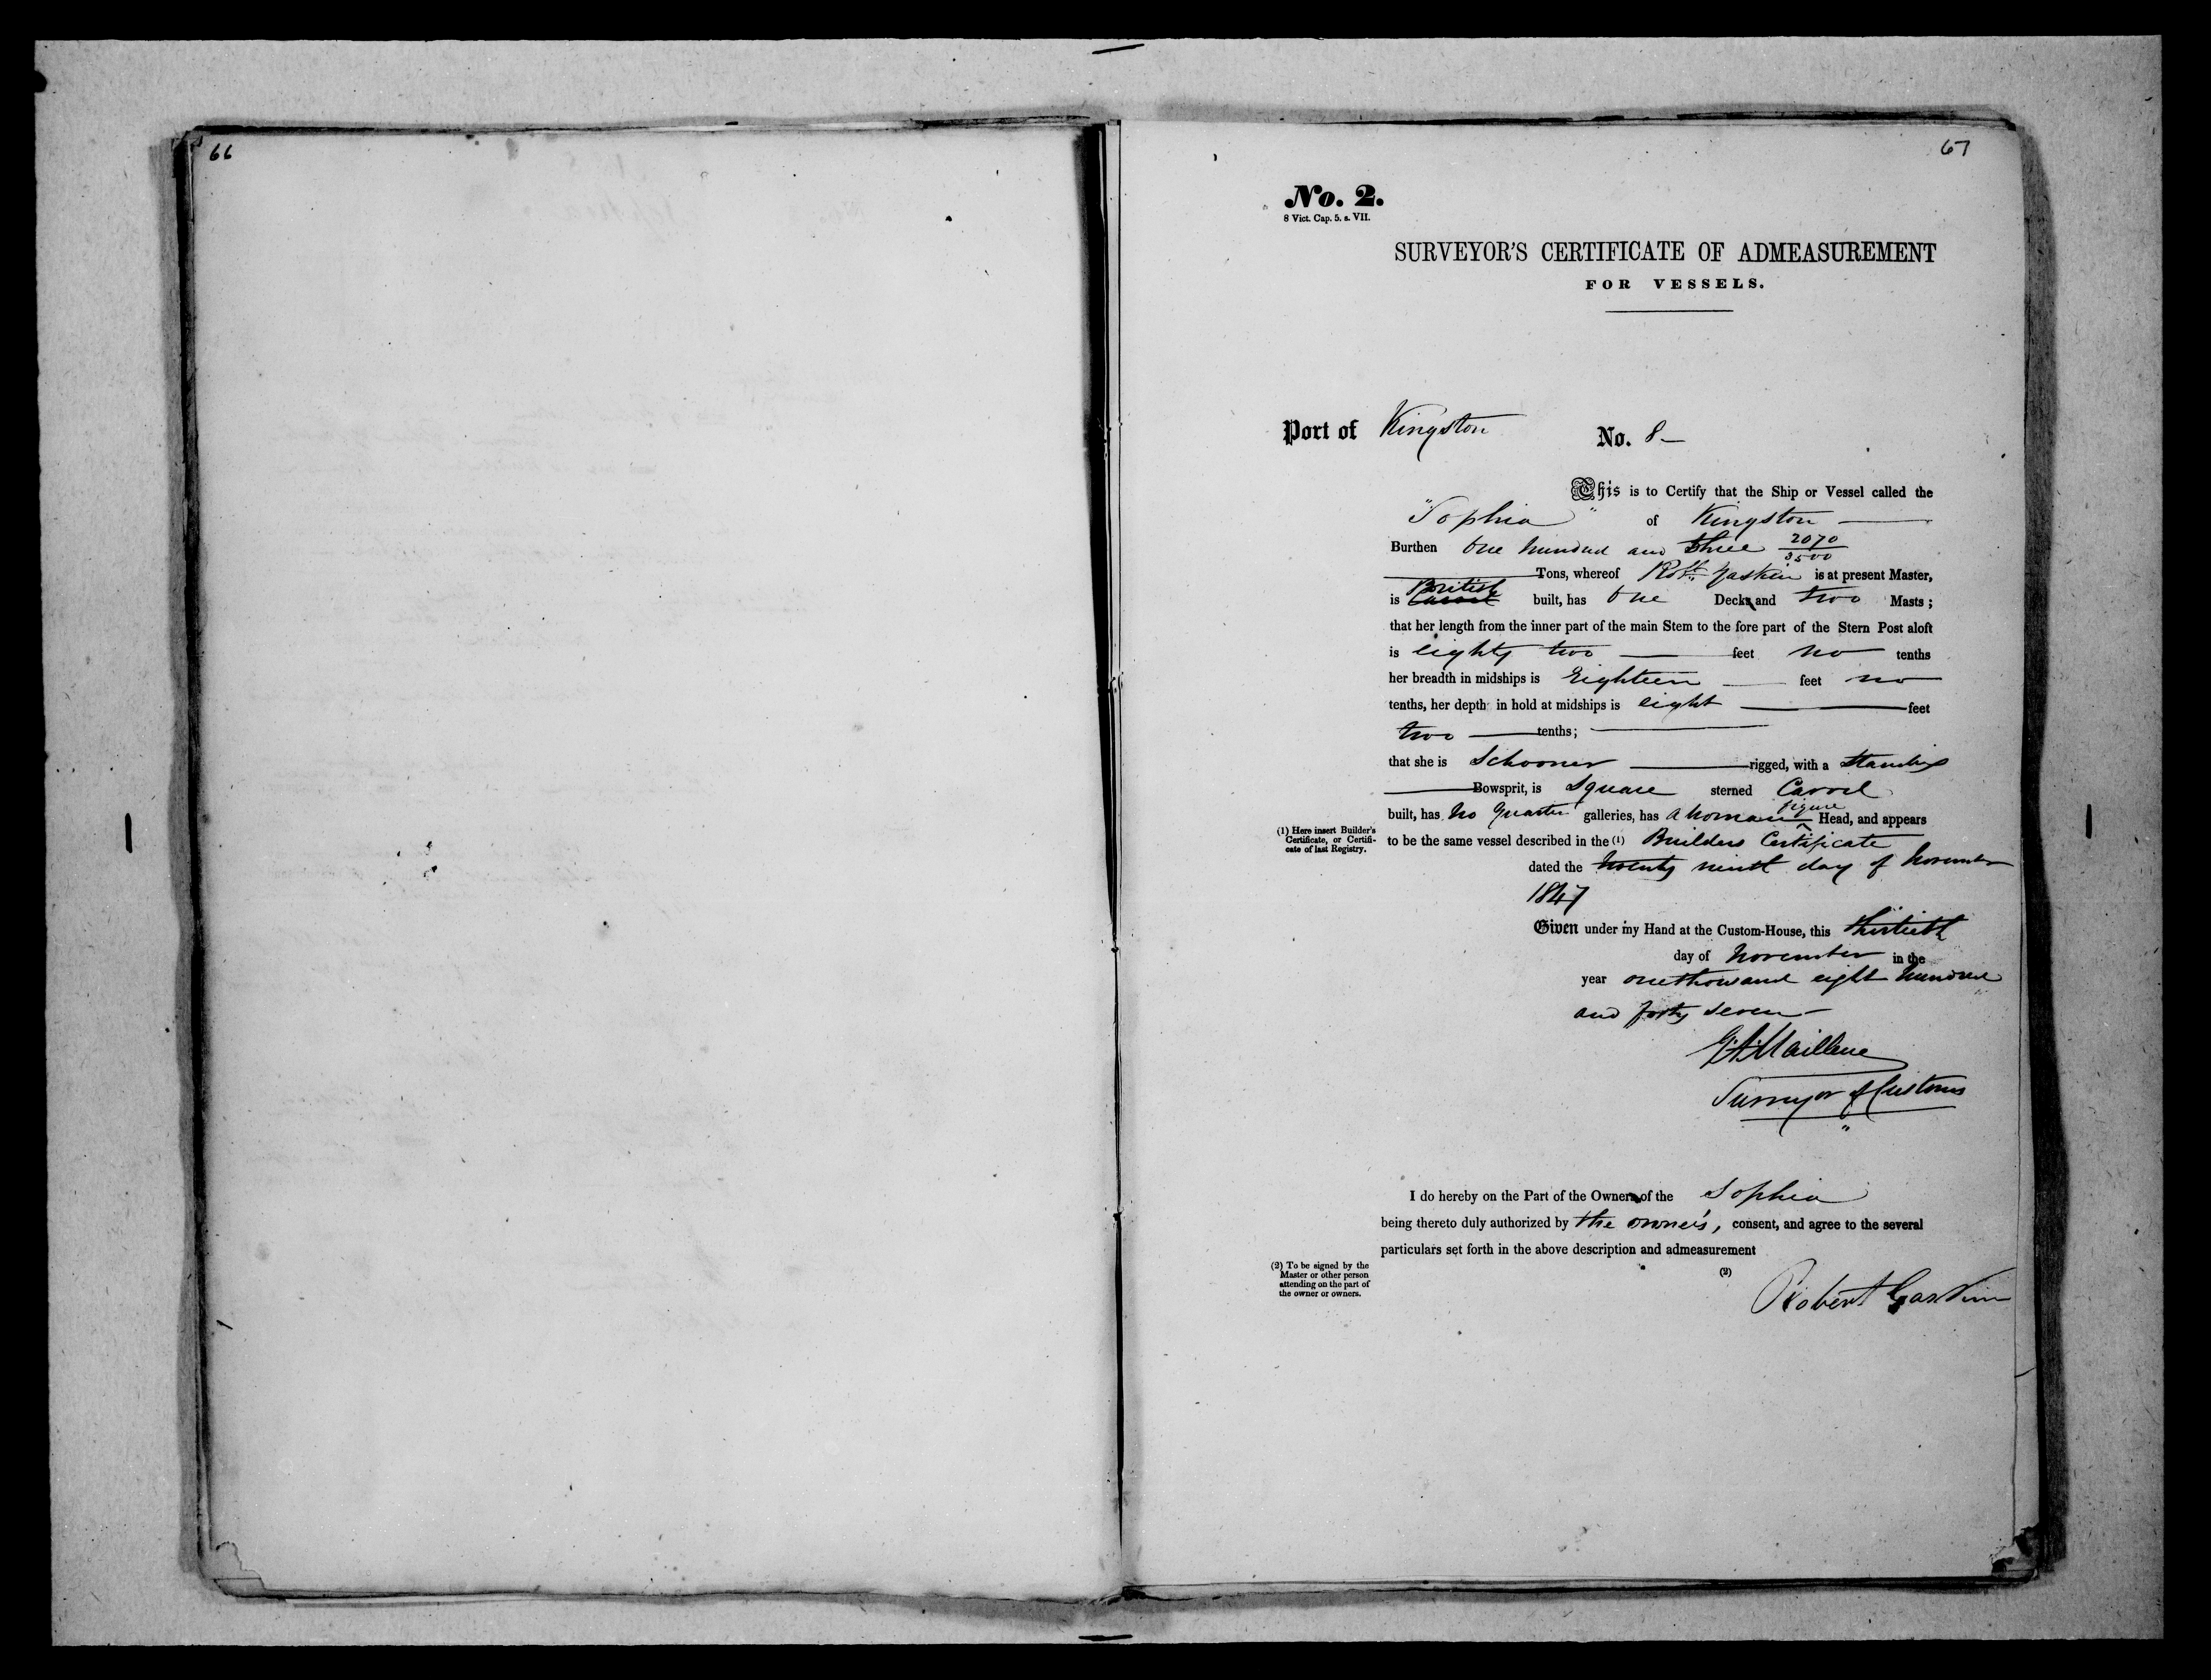 66
67
No. 2.
8 Vict. Cap. 5. s. VII.
SURVEYOR'S CERTIFICATE OF ADMEASUREMENT
FOR VESSELS.
Port of Kingston No. 8
This is to Certify that the Ship or Vessel called the
"Sophia" of Kingston
Burthen One hundred and three 2070/3500
Tons, whereof Robt. Gaskin is at present Master,
British
is Carvel built, has One Decks and two Masts;
that her length from the inner part of the main Stem to the fore part of the Stern Post aloft
is eighty two feet no tenths
her breadth in midships is Eighteen feet no
tenths, her depth in hold at midships is eight feet
two tenths;
that she is Schooner rigged, with a Standing
Bowsprit, is Square sterned Carvel
figure
built, has No Quarter galleries, has a Woman Head, and appears
(1) Here insert Builder's Certificate, or Certificate of last Registry.
to be the same vessel described in the (1) Builders Certificate
dated the twenty ninth day of November
1847
Given under my Hand at the Custom-House, this thirtieth
day of November in the
year one thousand eight hundred
and forty seven
Surveyor of Customs
I do hereby on the Part of the Owners of the Sophia
being thereto duly authorized by the owners, consent, and agree to the several
particulars set forth in the above description and admeasurement
(2) To be signed by the
Master or other person
attending on the part of
the owner or owners.
(2)
Robert Gaskin